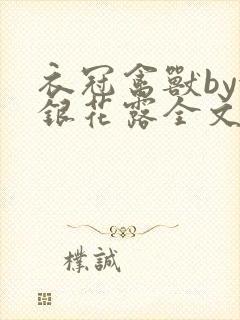 衣冠禽獸by
銀花露全文
樸誠